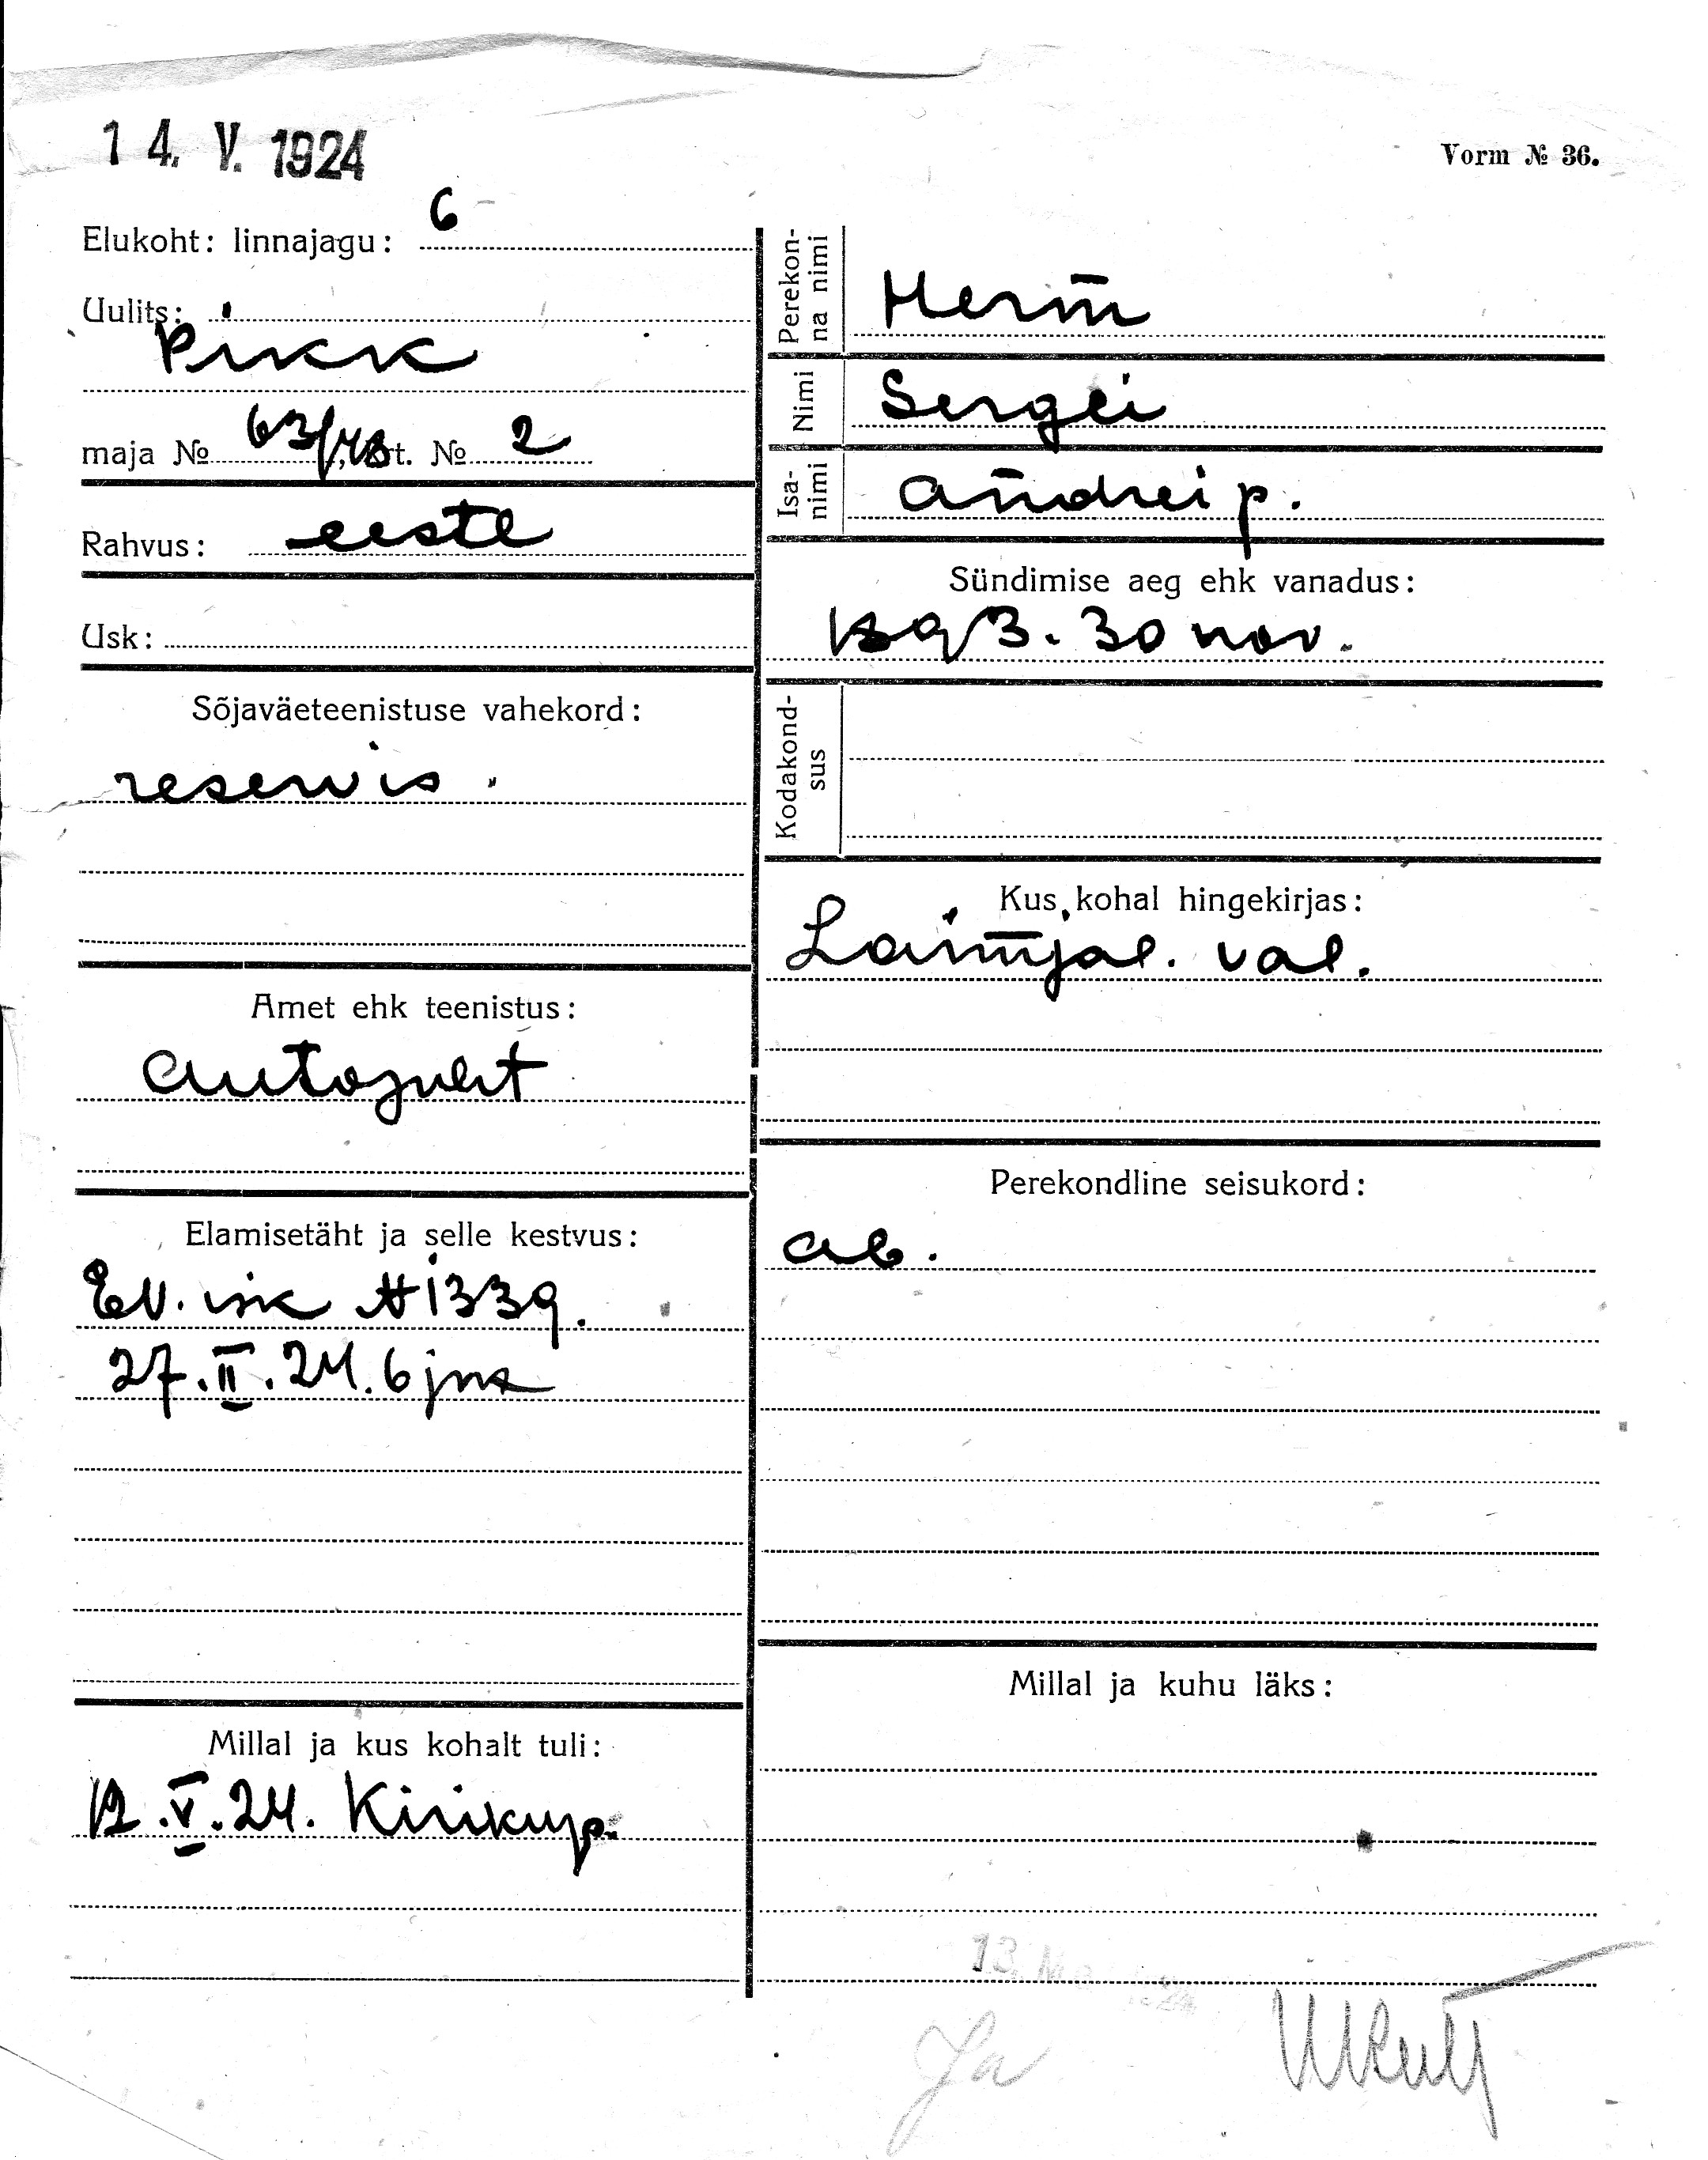 14. V. 1924
Vorm № 36.
Elukoht: linnajagu: 6
Uulits:
Pikk
maja № 63/ krt. № 2
Rahvus: eestl
Usk:
Sõjaväeteenistuse vahekord:
reservis.
Amet ehk teenistus:
autojuht
Elamisetäht ja selle kestvus:
EV. isik № 1339.
27.II.24. 6 jms
Millal ja kus kohalt tuli:
12.V.24. Kirikup.
Perekon-
na nimi
Herm̄
Nimi
Sergei
Isa-
nimi
Andrei p.
Sündimise aeg ehk vanadus:
1893. 30 nov.
Kodakond-
sus
Kus kohal hingekirjas:
Laimjal. val.
Perekondline seisukord:
ab.
Millal ja kuhu läks:
Ja